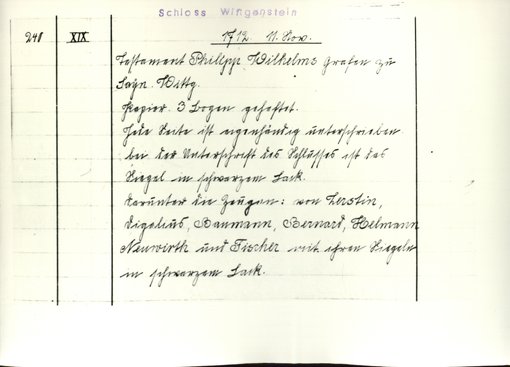 Schloss Wittgenstein
248 XIX 1712. 11. Nov.
Testament Philipp Wilhelms Grafen zu
Sayn. Wittg.
Papier. 3 Bogen geheftet.
Jede Seite ist eigenhändig unterschrieben
bei der Unterschrift des Schlusses ist das
Siegel in schwarzem Lack.
darunter die Zeugen: von Zerstin,
Vigelius, Baumann, Bernard, Helmann
Neuwirth und Fischer mit ihren Siegeln
in schwarzem Lack.